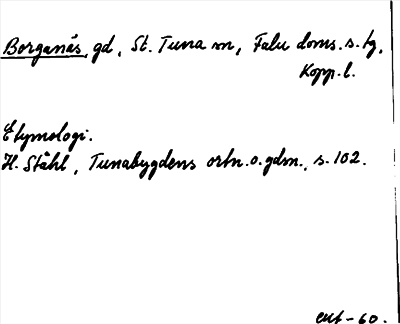 Borganäs, gd, St. Tuna sn, Falu doms. s. tg,
Kopp. l.
Etymologi.
H. Ståhl, Tunabygdens ortn. o. gdm., s. 102.
- 60.